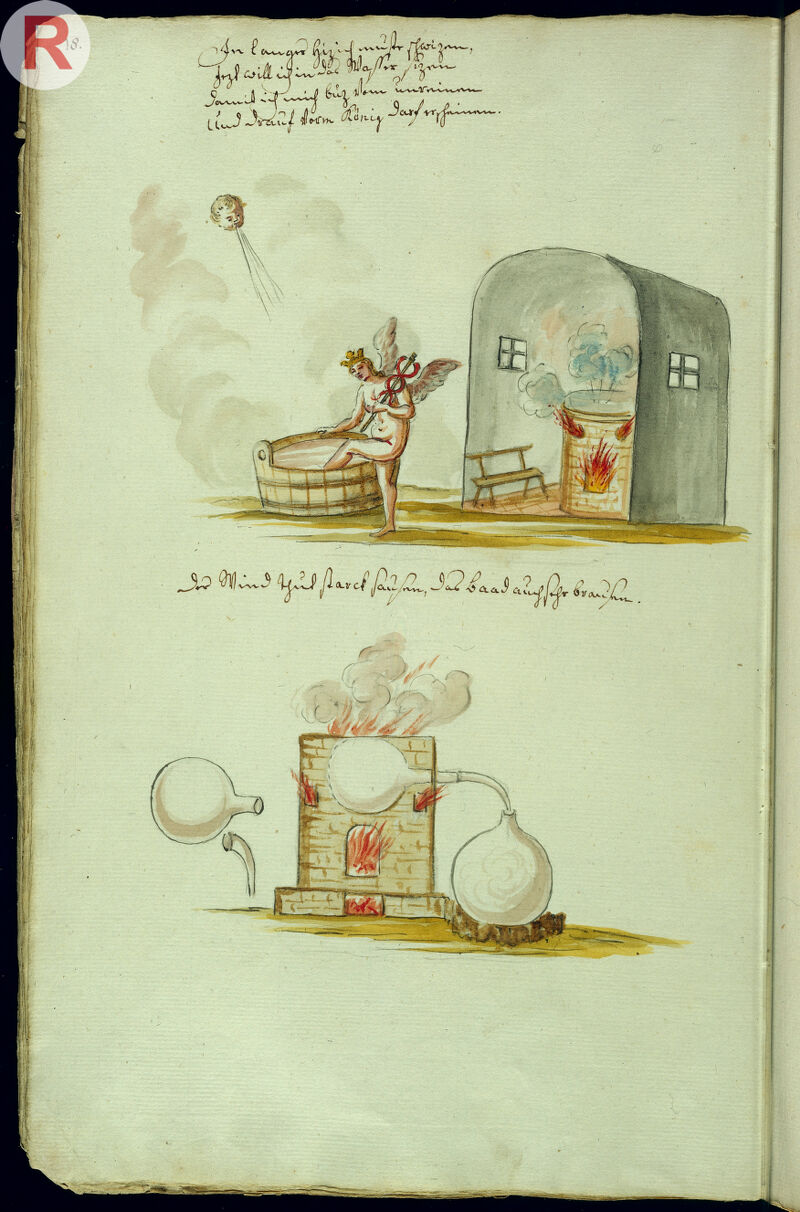 R
8.
In langer Hiz ich muste schwizen,
Jezt will ich in das Wasser sizen
damit ich mich buz vom unreinen
Und drauf vorm König darf erscheinen.
der Wind thut starck sausen, das baad auch sehr brausen.